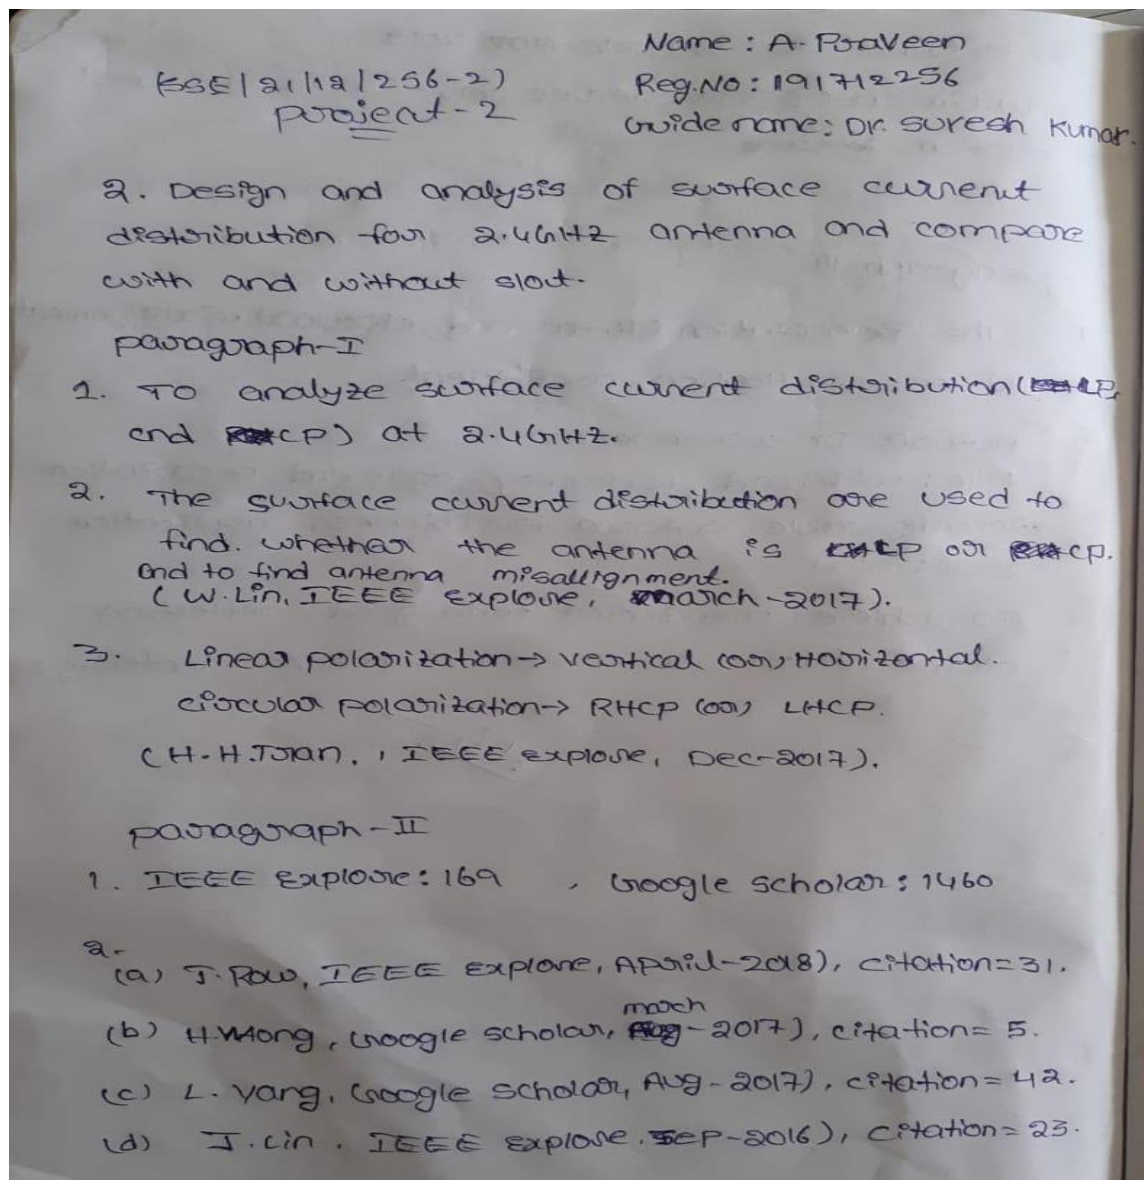 Name : A. Praveen
(SSE/21/12/256-2) Reg.No : 191712256
Project-2 Guide name: Dr. Suresh Kumar.
2. Design and analysis of surface current
distribution for 2.4GHz antenna and compare
with and without slot.
paragraph-I
1. To analyze surface current distribution (LP,
and CP) at 2.4GHz.
2. The surface current distribution are used to
find. whether the antenna is LP or CP.
and to find antenna misallignment.
(W.Lin, IEEE Explore, march-2017).
3. Linear polarization→ vertical (or) Horizontal.
circular polarization→ RHCP (or) LHCP.
(H.H.Tran. , IEEE explore, Dec-2017).
paragraph-II
1. IEEE Explore: 169 , Google scholar: 1460
2.
(a) J. Row, IEEE Explore, April-2018), citation=31.
march
(b) H.Wong, Google scholar, -2017), citation= 5.
(c) L. Yang, Google scholar, Aug-2017), citation=42.
(d) J. Lin. IEEE explore. Sep-2016), Citation=23.